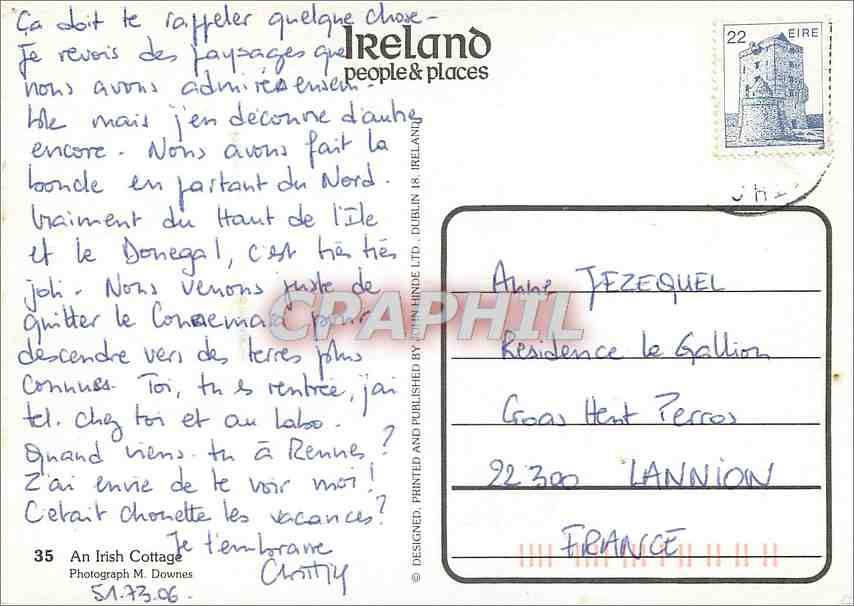 Ça doit te rappeler quelque chose -
Je revois des paysages que
nous avons admirés ensem-
ble mais j'en découvre d'autres
encore - Nous avons fait la
boucle en partant du Nord.
Vraiment du Haut de l'Ile
et le Donegal, c'est très très
joli - Nous venons juste de
quitter le Connemara pour
descendre vers des terres plus
connues. Toi, tu es rentrée, j'ai
tel. chez toi et au labo.
Quand viens-tu à Rennes ?
J'ai envie de te voir moi !
C'était chouette les vacances ?
Je t'embrasse
35 An Irish Cottage
Photograph M. Downes
51.73.06.
IRELAND
people & places
© DESIGNED, PRINTED AND PUBLISHED BY JOHN HINDE LTD., DUBLIN 18, IRELAND
22 EIRE
Anne JEZEQUEL
Résidence le Gallion
Croas Hent Perros
22 300 LANNION
FRANCE
CPAPHIL